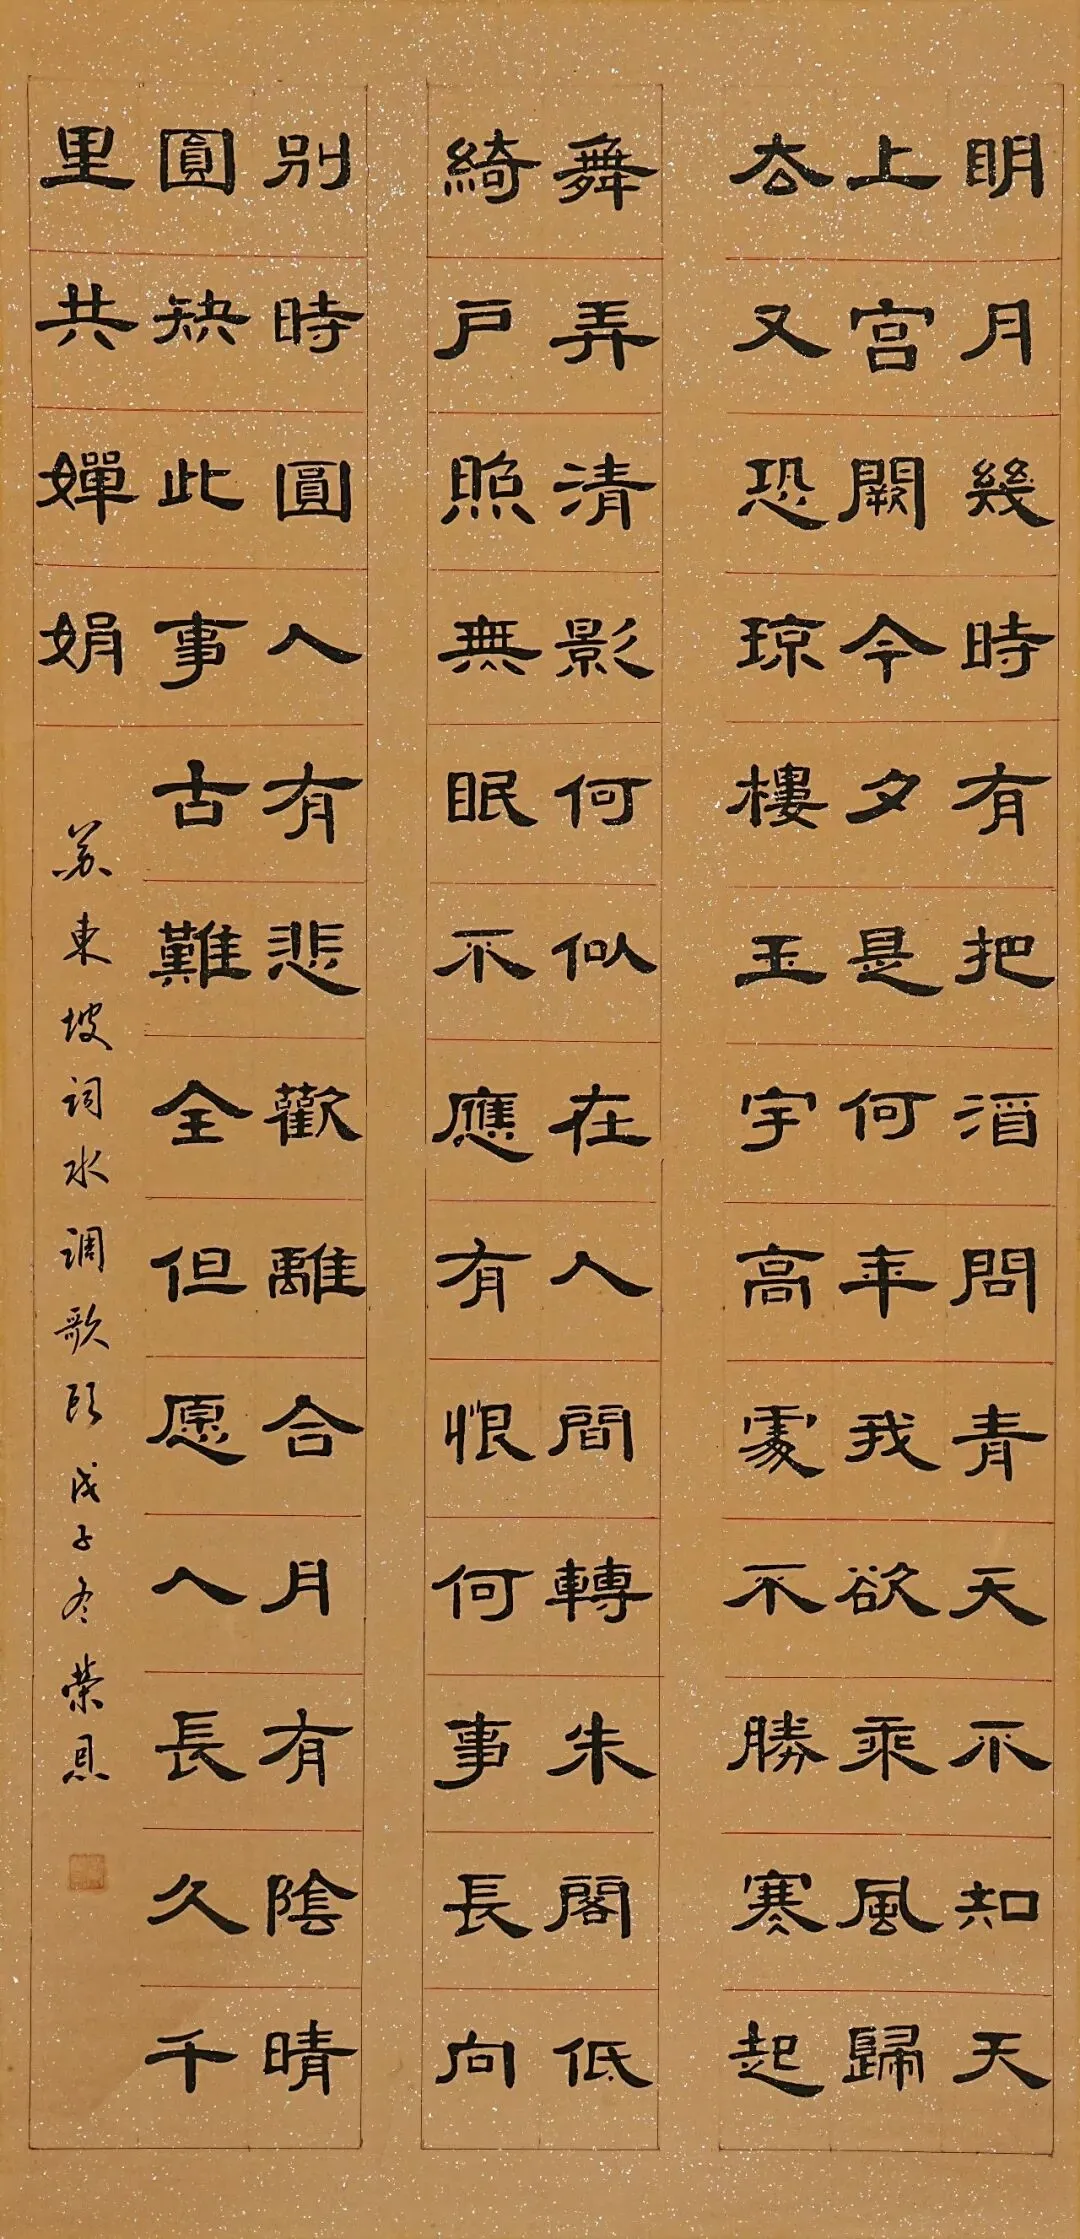 明月幾時有把酒問青天不知天
上宮闕今夕是何年我欲乘風歸
去又恐瓊樓玉宇高處不勝寒起
舞弄清影何似在人間轉朱閣低
綺戶照無眠不應有恨何事長向
別時圓人有悲歡離合月有陰晴
圓缺此事古難全但愿人長久千
里共嬋娟
苏東坡词水调歌頭戊子冬榮恩